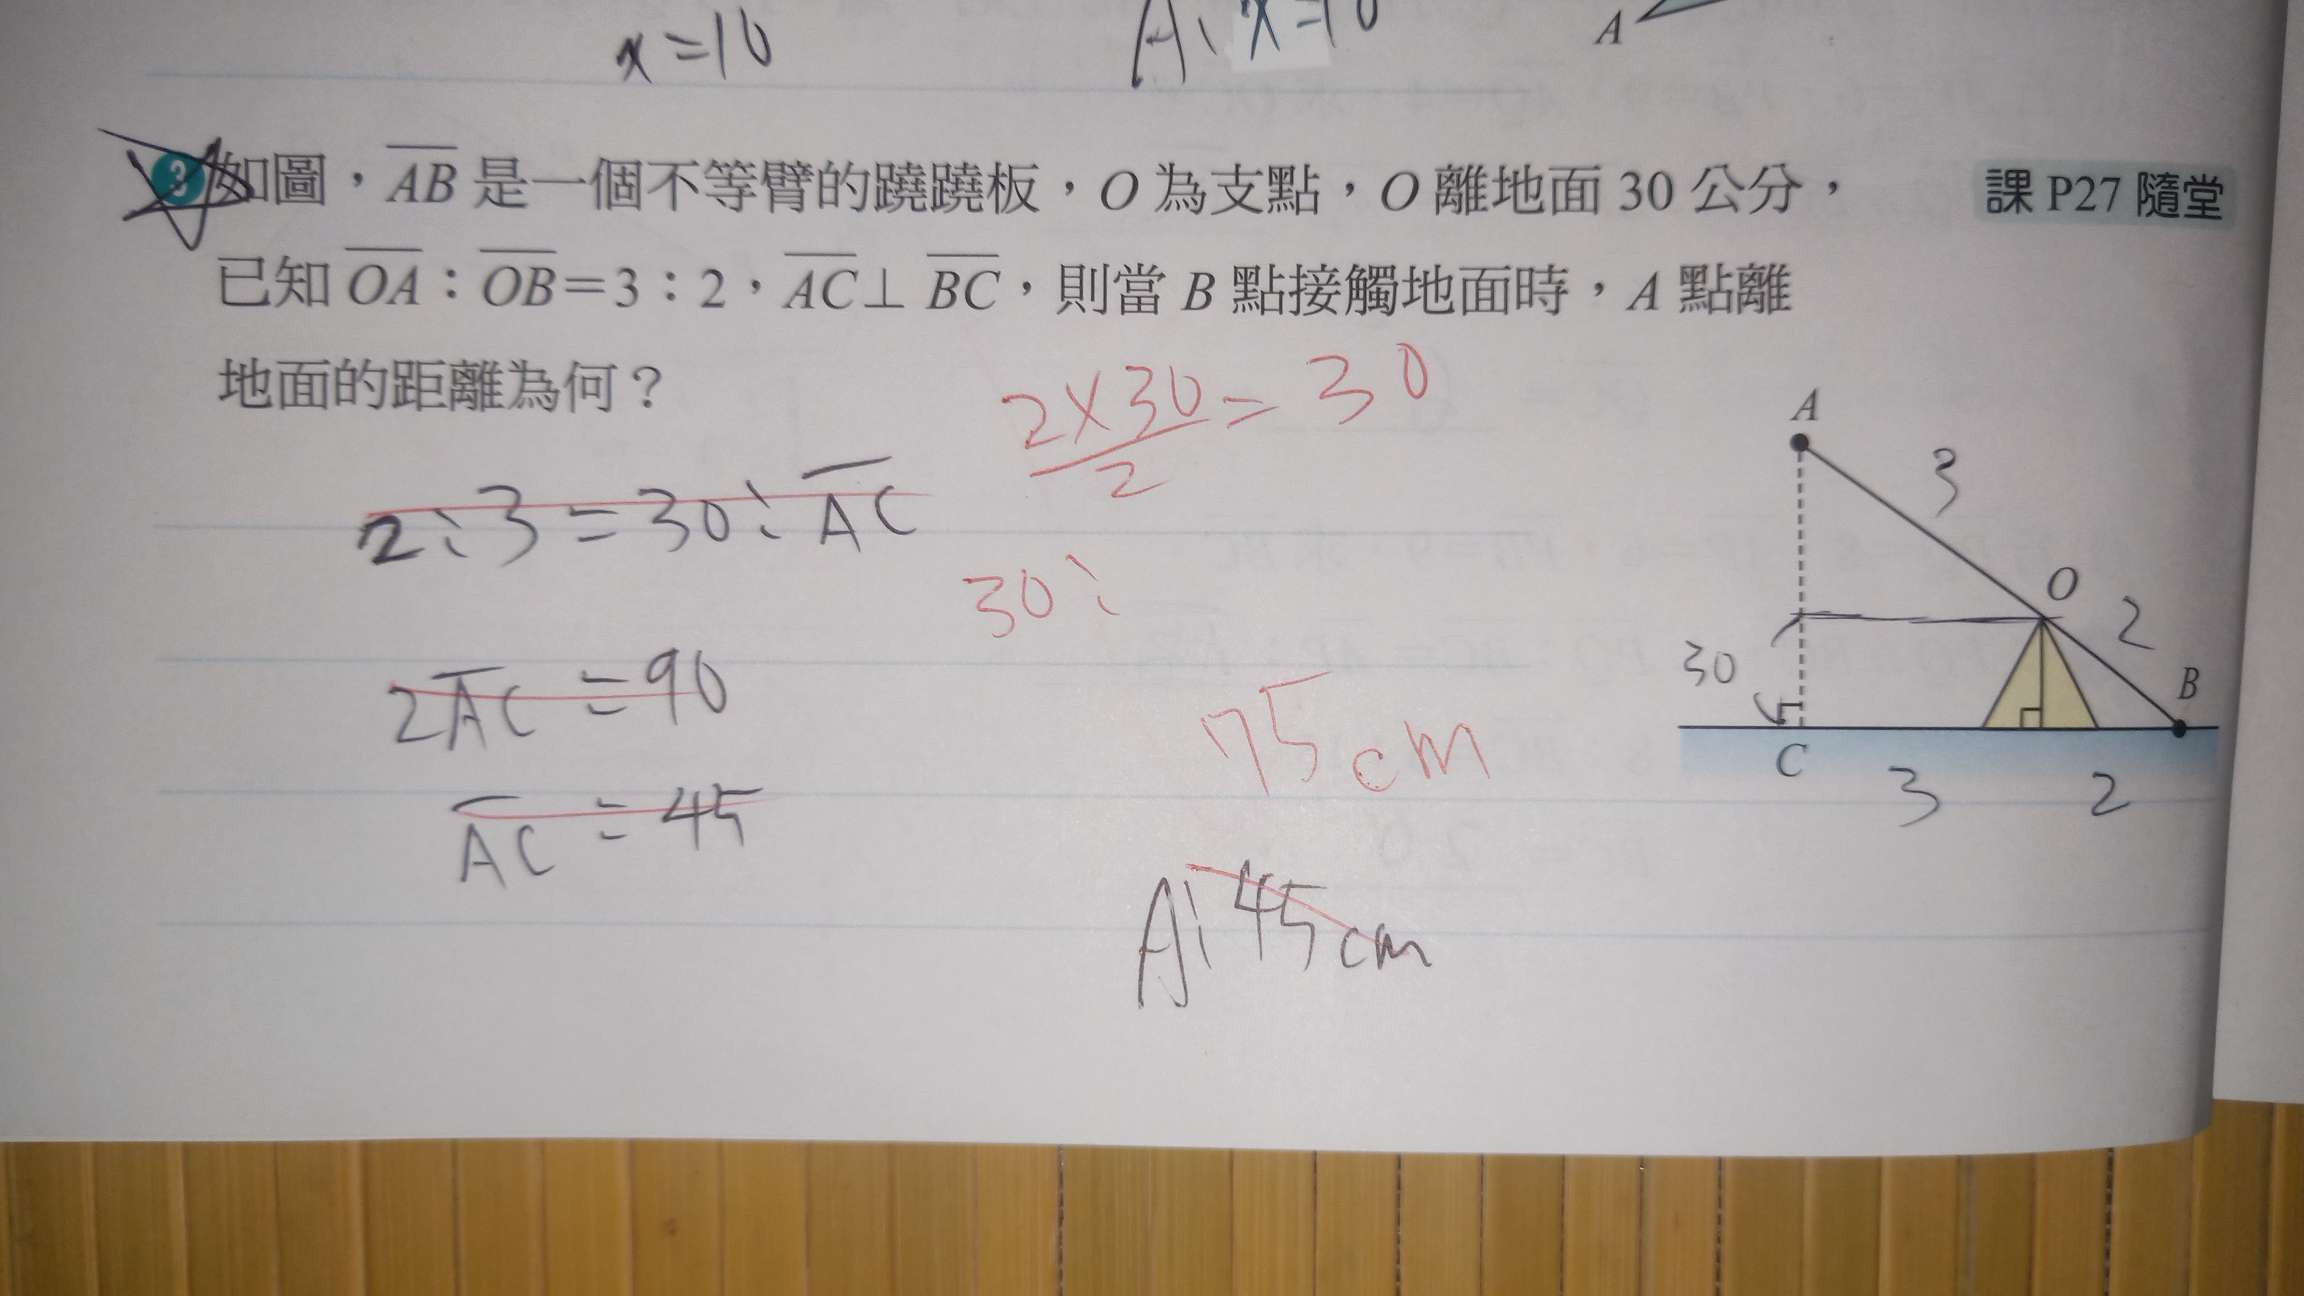 x=10
A: x=10
A
3 如圖，AB 是一個不等臂的蹺蹺板，O 為支點，O 離地面 30 公分，
課 P27 隨堂
已知 OA：OB＝3：2，AC⊥BC，則當 B 點接觸地面時，A 點離
地面的距離為何？
2×30/2=30
2:3=30:AC
30:
2AC=90
75cm
AC=45
A:45cm
A
3
O
2
30
B
C
3
2